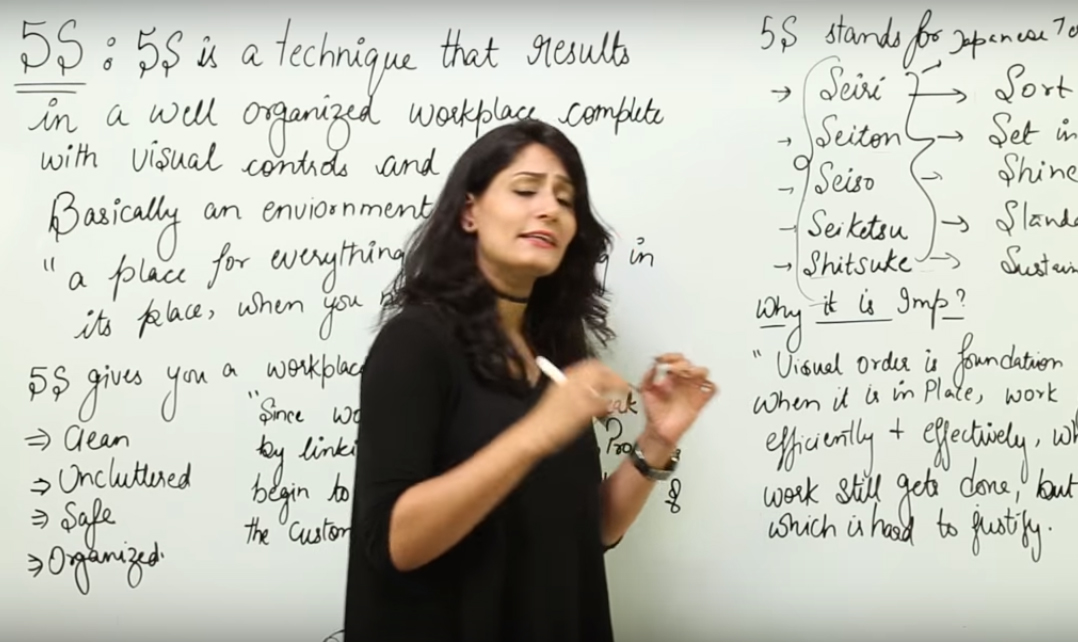 5S : 5S is a technique that results
in a well organized workplace complete
with visual controls and
Basically an enviornment
" a place for everything in
its place, when you
5S gives you a workplac
⇒ Clean
⇒ Uncluttered
⇒ Safe
⇒ Organized.
"Since wo
by linki Pro
begin to &
the Custom
5S stands for Japanese
→ Seiri → Sort
→ Seiton → Set in
→ Seiso → Shine
→ Seiketsu → Standa
→ Shitsuke → Sustain
Why it is Imp?
"Visual order is foundation
when it is in Place, work
efficiently + effectively, wh
work still gets done, but
which is hard to justify.